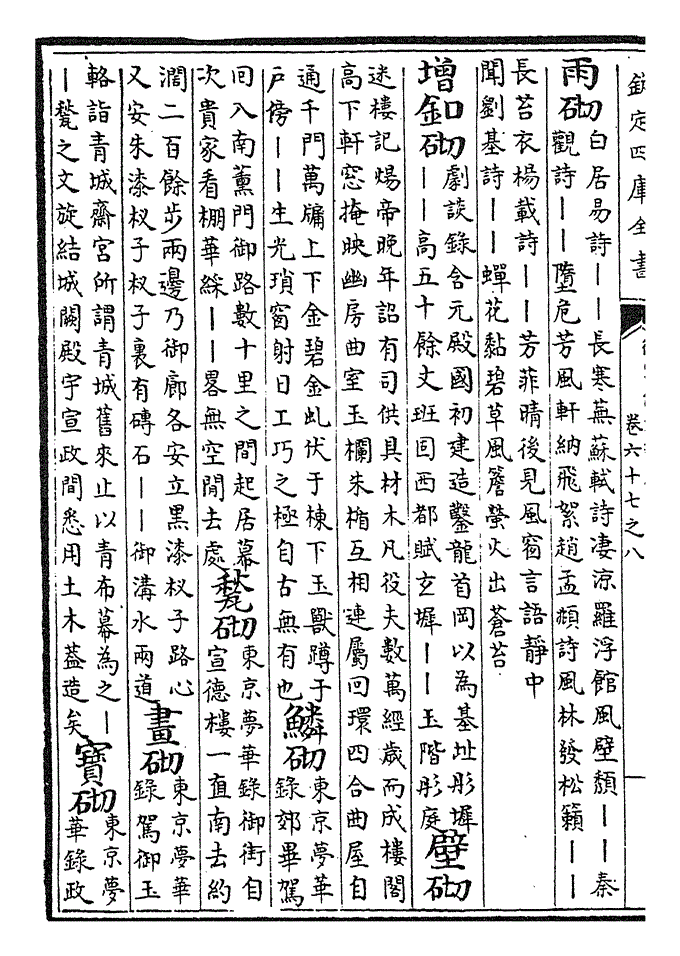 欽定四庫全書
卷六十七之八
雨砌
白居易詩——長寒蕪蘇軾詩淒涼羅浮館風壁頹——秦
觀詩——墮危芳風軒納飛絮趙孟頫詩風林發松籟——
長苔衣楊載詩——芳菲晴後見風窗言語靜中
聞劉基詩——蟬花黏碧草風簷螢火出蒼苔
增釦砌
劇談錄含元殿國初建造鑿龍首岡以為基址彤墀
——高五十餘丈班固西都賦玄墀——玉階彤庭
壁砌
迷樓記煬帝晚年詔有司供具材木凡役夫數萬經歲而成樓閣
高下軒窓掩映幽房曲室玉欄朱楯互相連屬回環四合曲屋自
通千門萬牖上下金碧金虬伏于棟下玉獸蹲于
戶傍——生光瑣窗射日工巧之極自古無有也
鱗砌
東京夢華
錄郊畢駕
回入南薰門御路數十里之間起居幕
次貴家看棚華綵——畧無空閒去處
甃砌
東京夢華錄御街自
宣德樓一直南去約
濶二百餘步兩邊乃御廊各安立黑漆杈子路心
又安朱漆杈子杈子裏有磚石——御溝水兩道
畫砌
東京夢華
錄駕御玉
輅詣青城齋宮所謂青城舊來止以青布幕為之—
—甃之文旋結城闕殿宇宣政間悉用土木葢造矣
寶砌
東京夢
華錄政